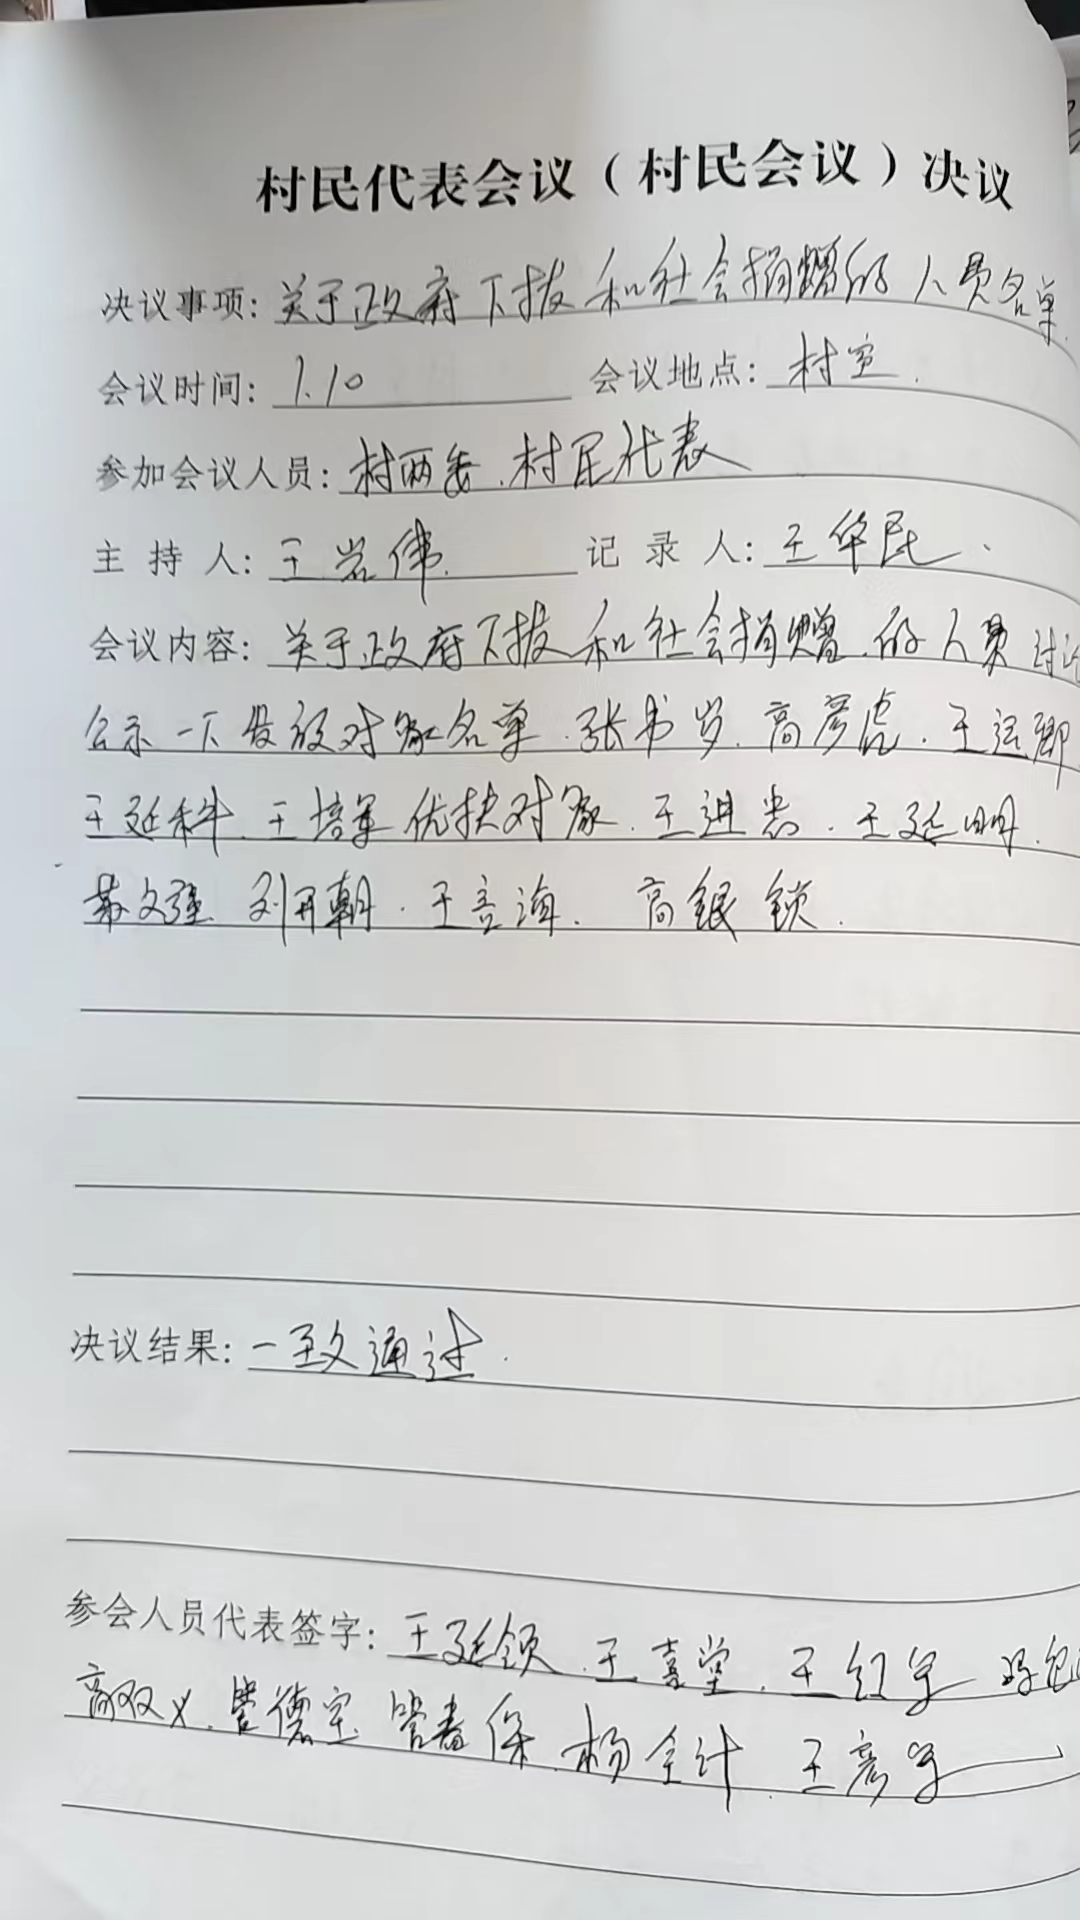 村民代表会议（村民会议）决议
决议事项：关于政府下拨和社会捐赠的人员名单.
会议时间：1.10 会议地点：村室.
参加会议人员：村两委.村民代表
主持人：王岩伟. 记录人：王华民.
会议内容：关于政府下拨和社会捐赠.的人员讨论
公示一下发放对象名单.张书岁.高彦虎.王运卿.
王延科.王培军优扶对象.王进忠.王延明.
苏文强 刘开朝.王言海.高银锁.
决议结果：一致通过.
参会人员代表签字：王延领.王喜堂.王红军
高双义.管德宝 管春保.杨全计.王彦军